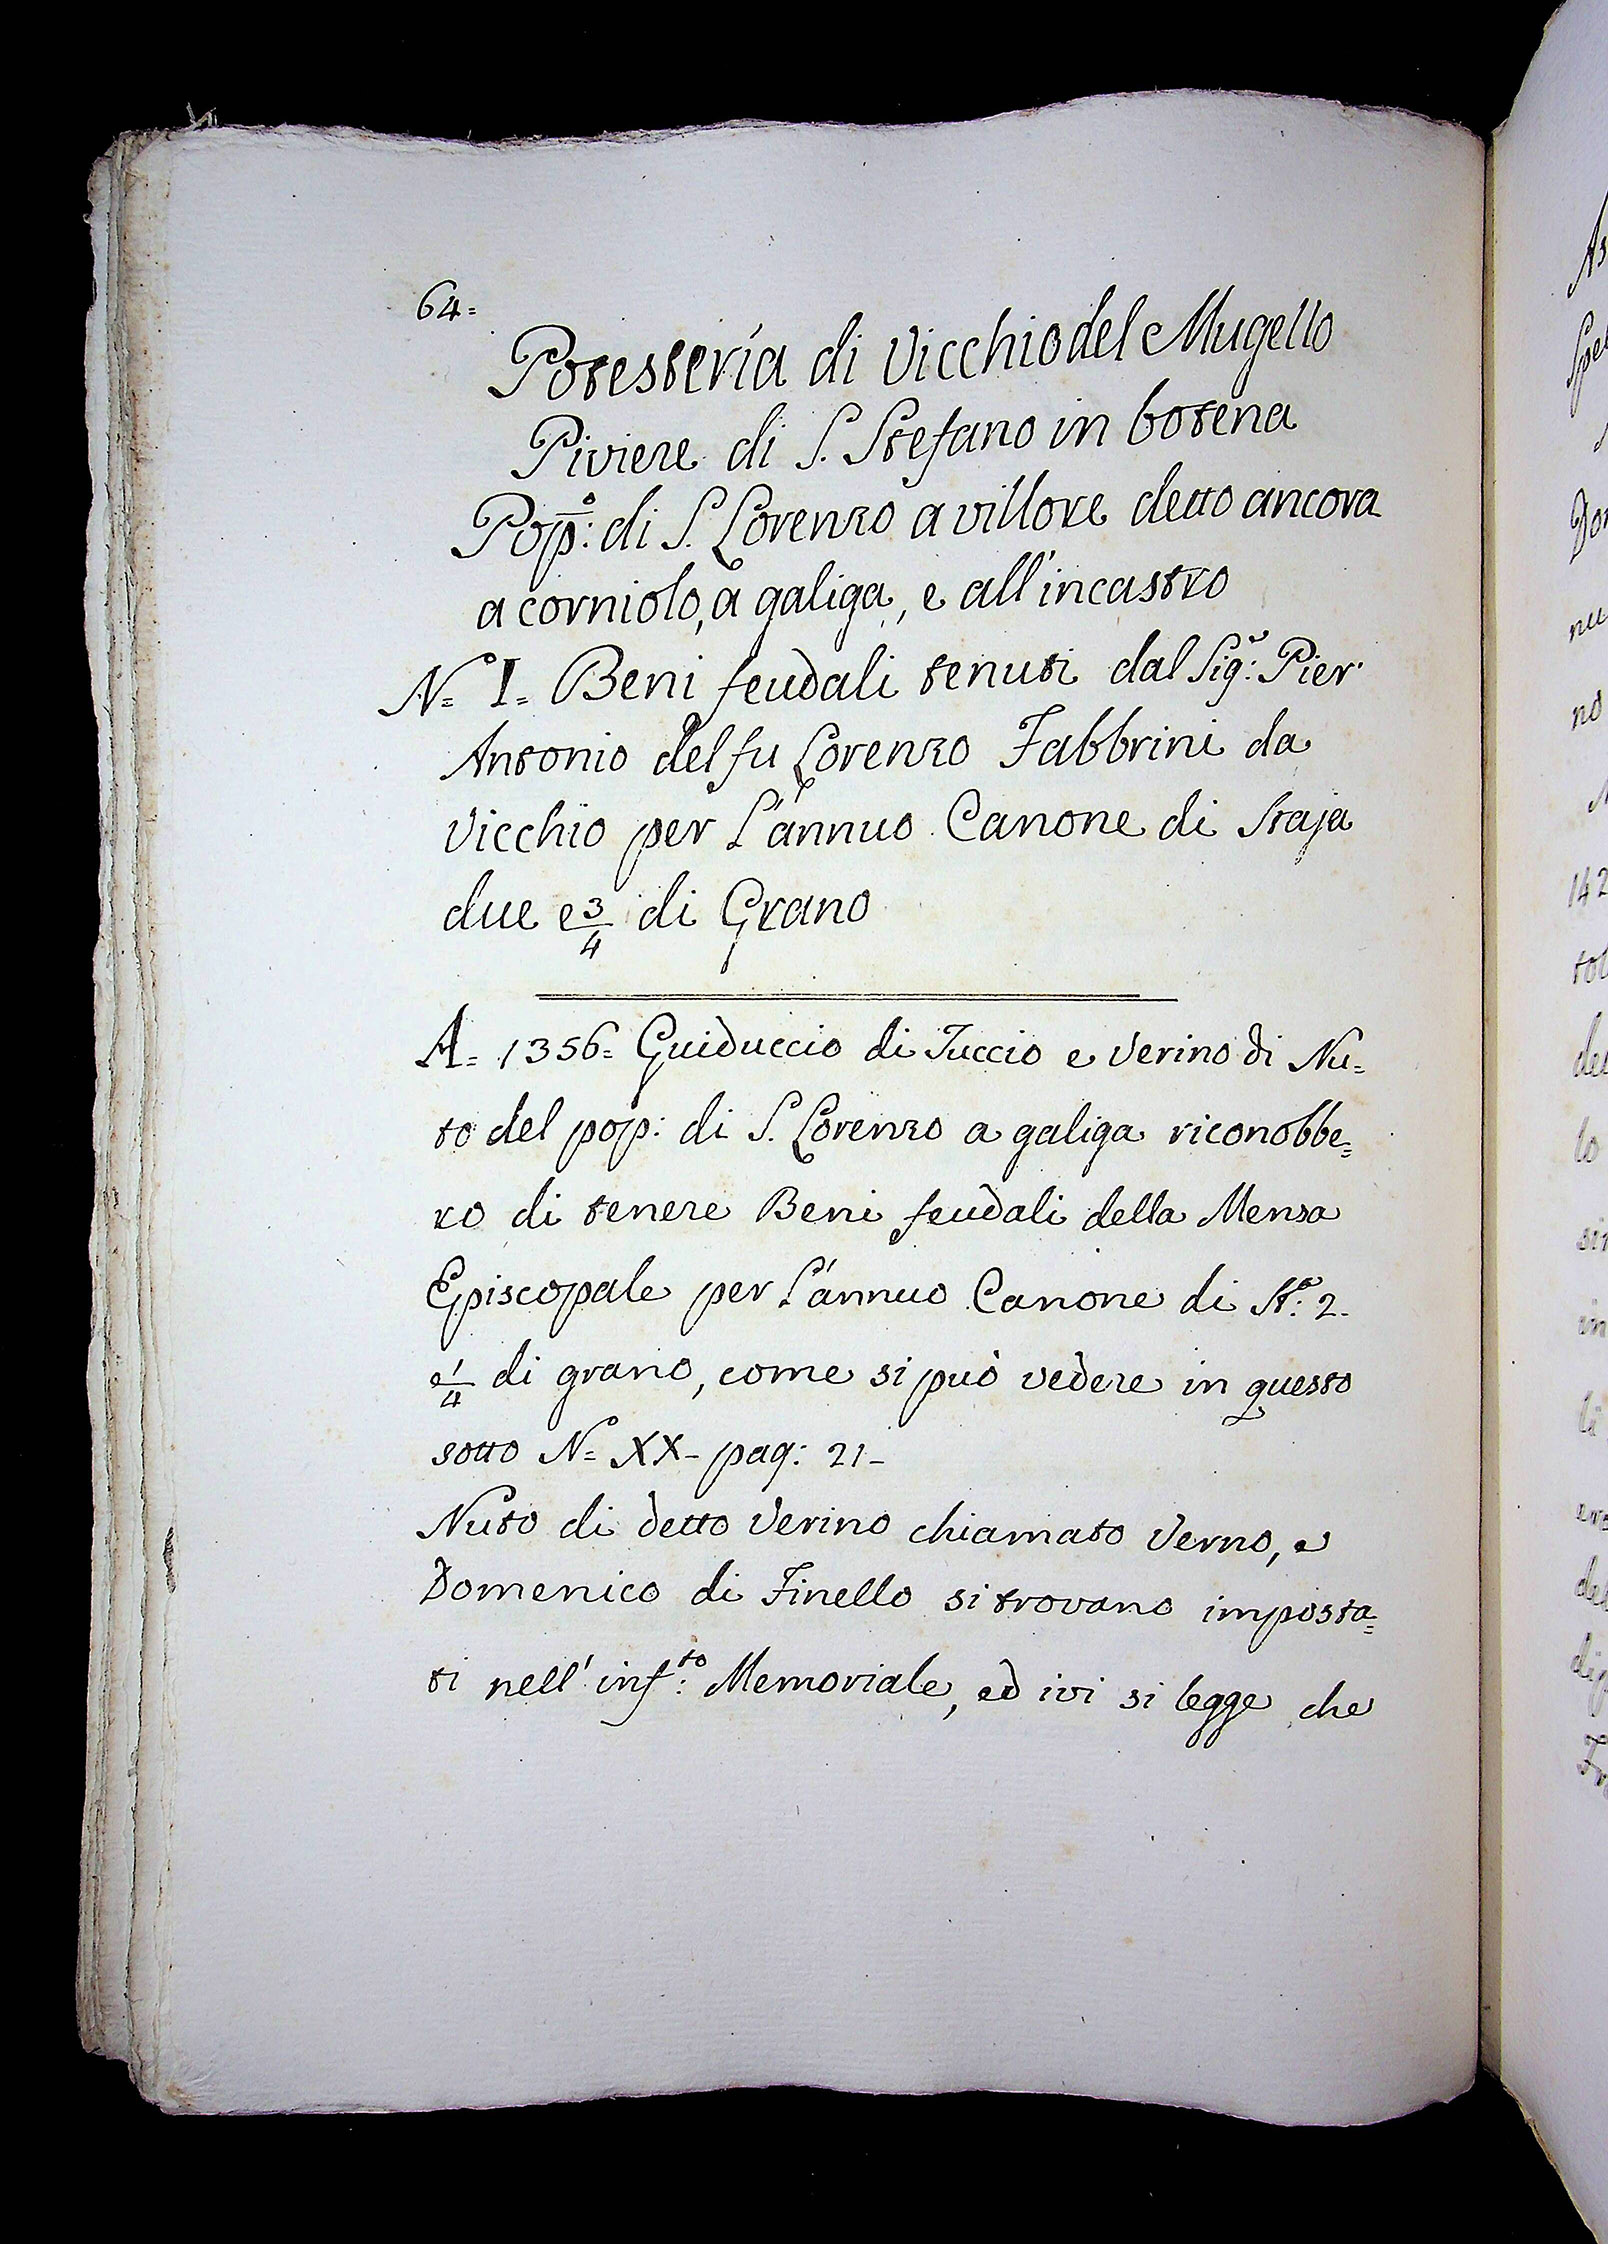 64=
Potesteria di Vicchio del Mugello
Piviere di S. Stefano in botena
Pop̄º: di S. Lorenzo a villore detto ancora
a corniolo, a galiga, e all'incastro
Nº= I= Beni feudali tenuti dal Sigʳ: Pier
Antonio del fu Lorenzo Fabbrini da
Vicchio per L'annuo Canone di Staja
due e 3/4 di Grano
A= 1356= Guiduccio di Tuccio e Verino di Nu=
to del pop: di S. Lorenzo a galiga riconobbe=
ro di tenere Beni feudali della Mensa
Episcopale per L'annuo Canone di Stª: 2-
e 1/4 di grano, come si può vedere in questo
sotto Nº= XX- pag: 21-
Nuto di detto Verino chiamato Verno, e
Domenico di Finello si trovano imposta=
ti nell' infᵗᵒ: Memoriale, ed ivi si legge che